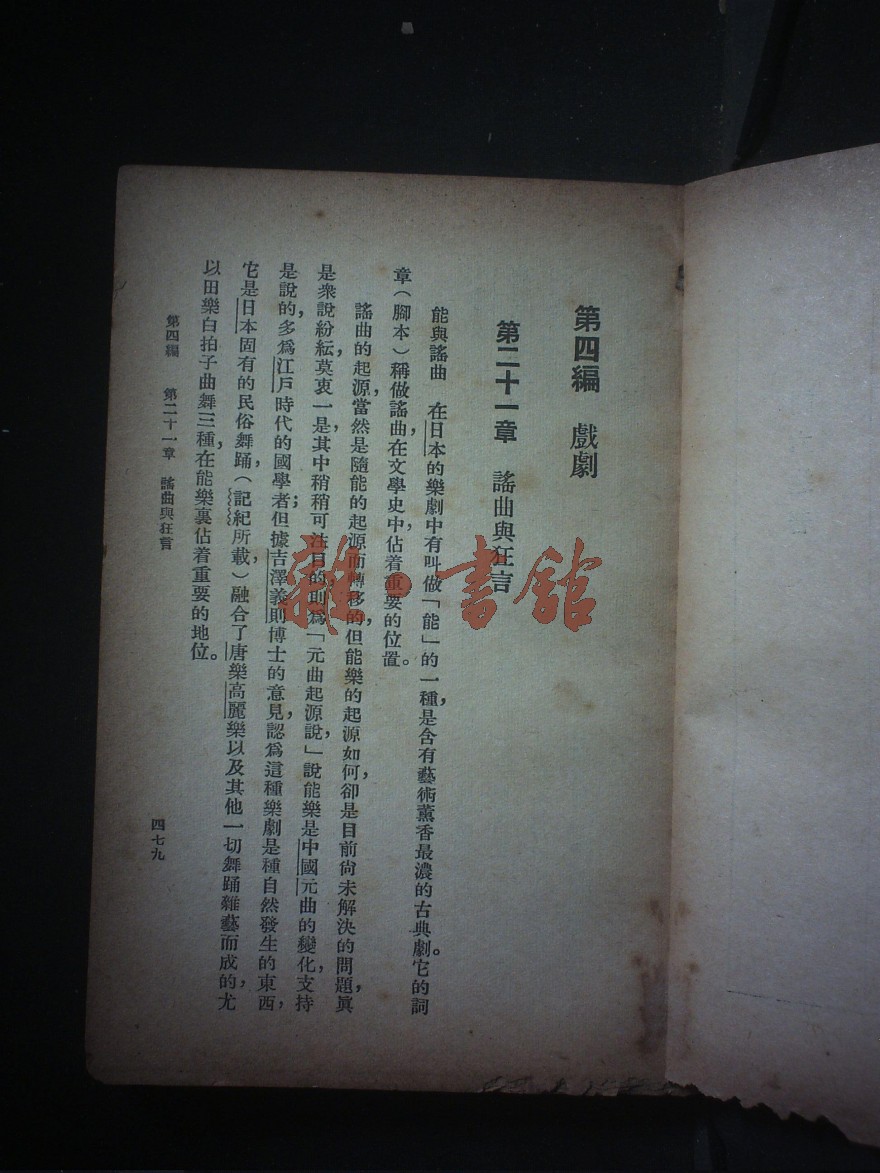 第四編 戲劇
第二十一章 謠曲與狂言
能與謠曲 在日本的樂劇中有叫做「能」的一種,是含有藝術薰香最濃的古典劇。它的詞
章(腳本)稱做謠曲,在文學史中佔着重要的位置。
謠曲的起源,當然是隨能的起源而轉移的,但能樂的起源如何,卻是目前尙未解決的問題,眞
是衆說紛紜,莫衷一是,其中稍稍可注目的,則爲「元曲起源說,」說能樂是中國元曲的變化,支持
是說的,多爲江戶時代的國學者;但據吉澤義則博士的意見,認爲這種樂劇是種自然發生的東西,
它是日本固有的民俗舞踊,(記紀所載)融合了唐樂高麗樂以及其他一切舞踊雜藝而成的,尤
以田樂白拍子曲舞三種,在能樂裏佔着重要的地位。
第四編 第二十一章 謠曲與狂言
四七九
雜·書館